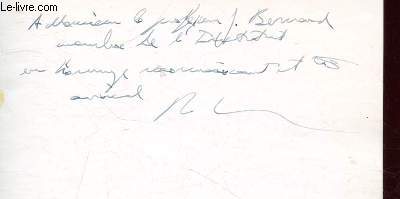 © Le-livre.com
A Monsieur le professeur J. Bernard
membre de l'Institut
en hommage reconnaissant et très
amical